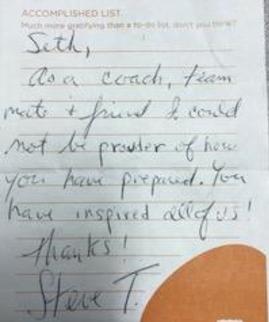 ACCOMPLISHED LIST.
Much more gratifying than a to-do list, don't you think?
Seth,
As a coach, team
mate + friend I could
not be prouder of how
you have prepared. You
have inspired all of us!
Thanks!
Steve T.